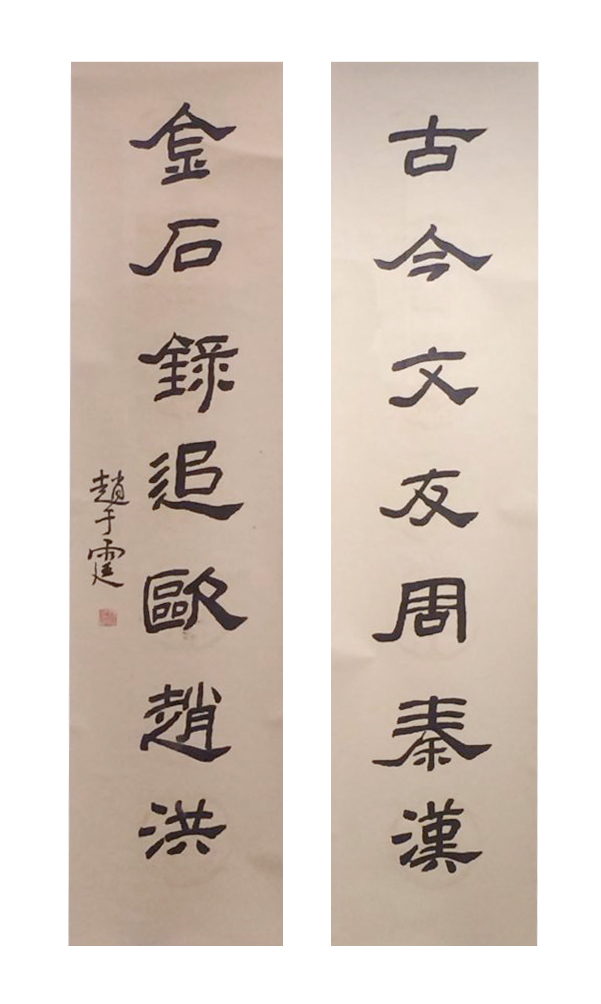 古今文友周秦漢
金石錄追歐趙洪
趙于霆